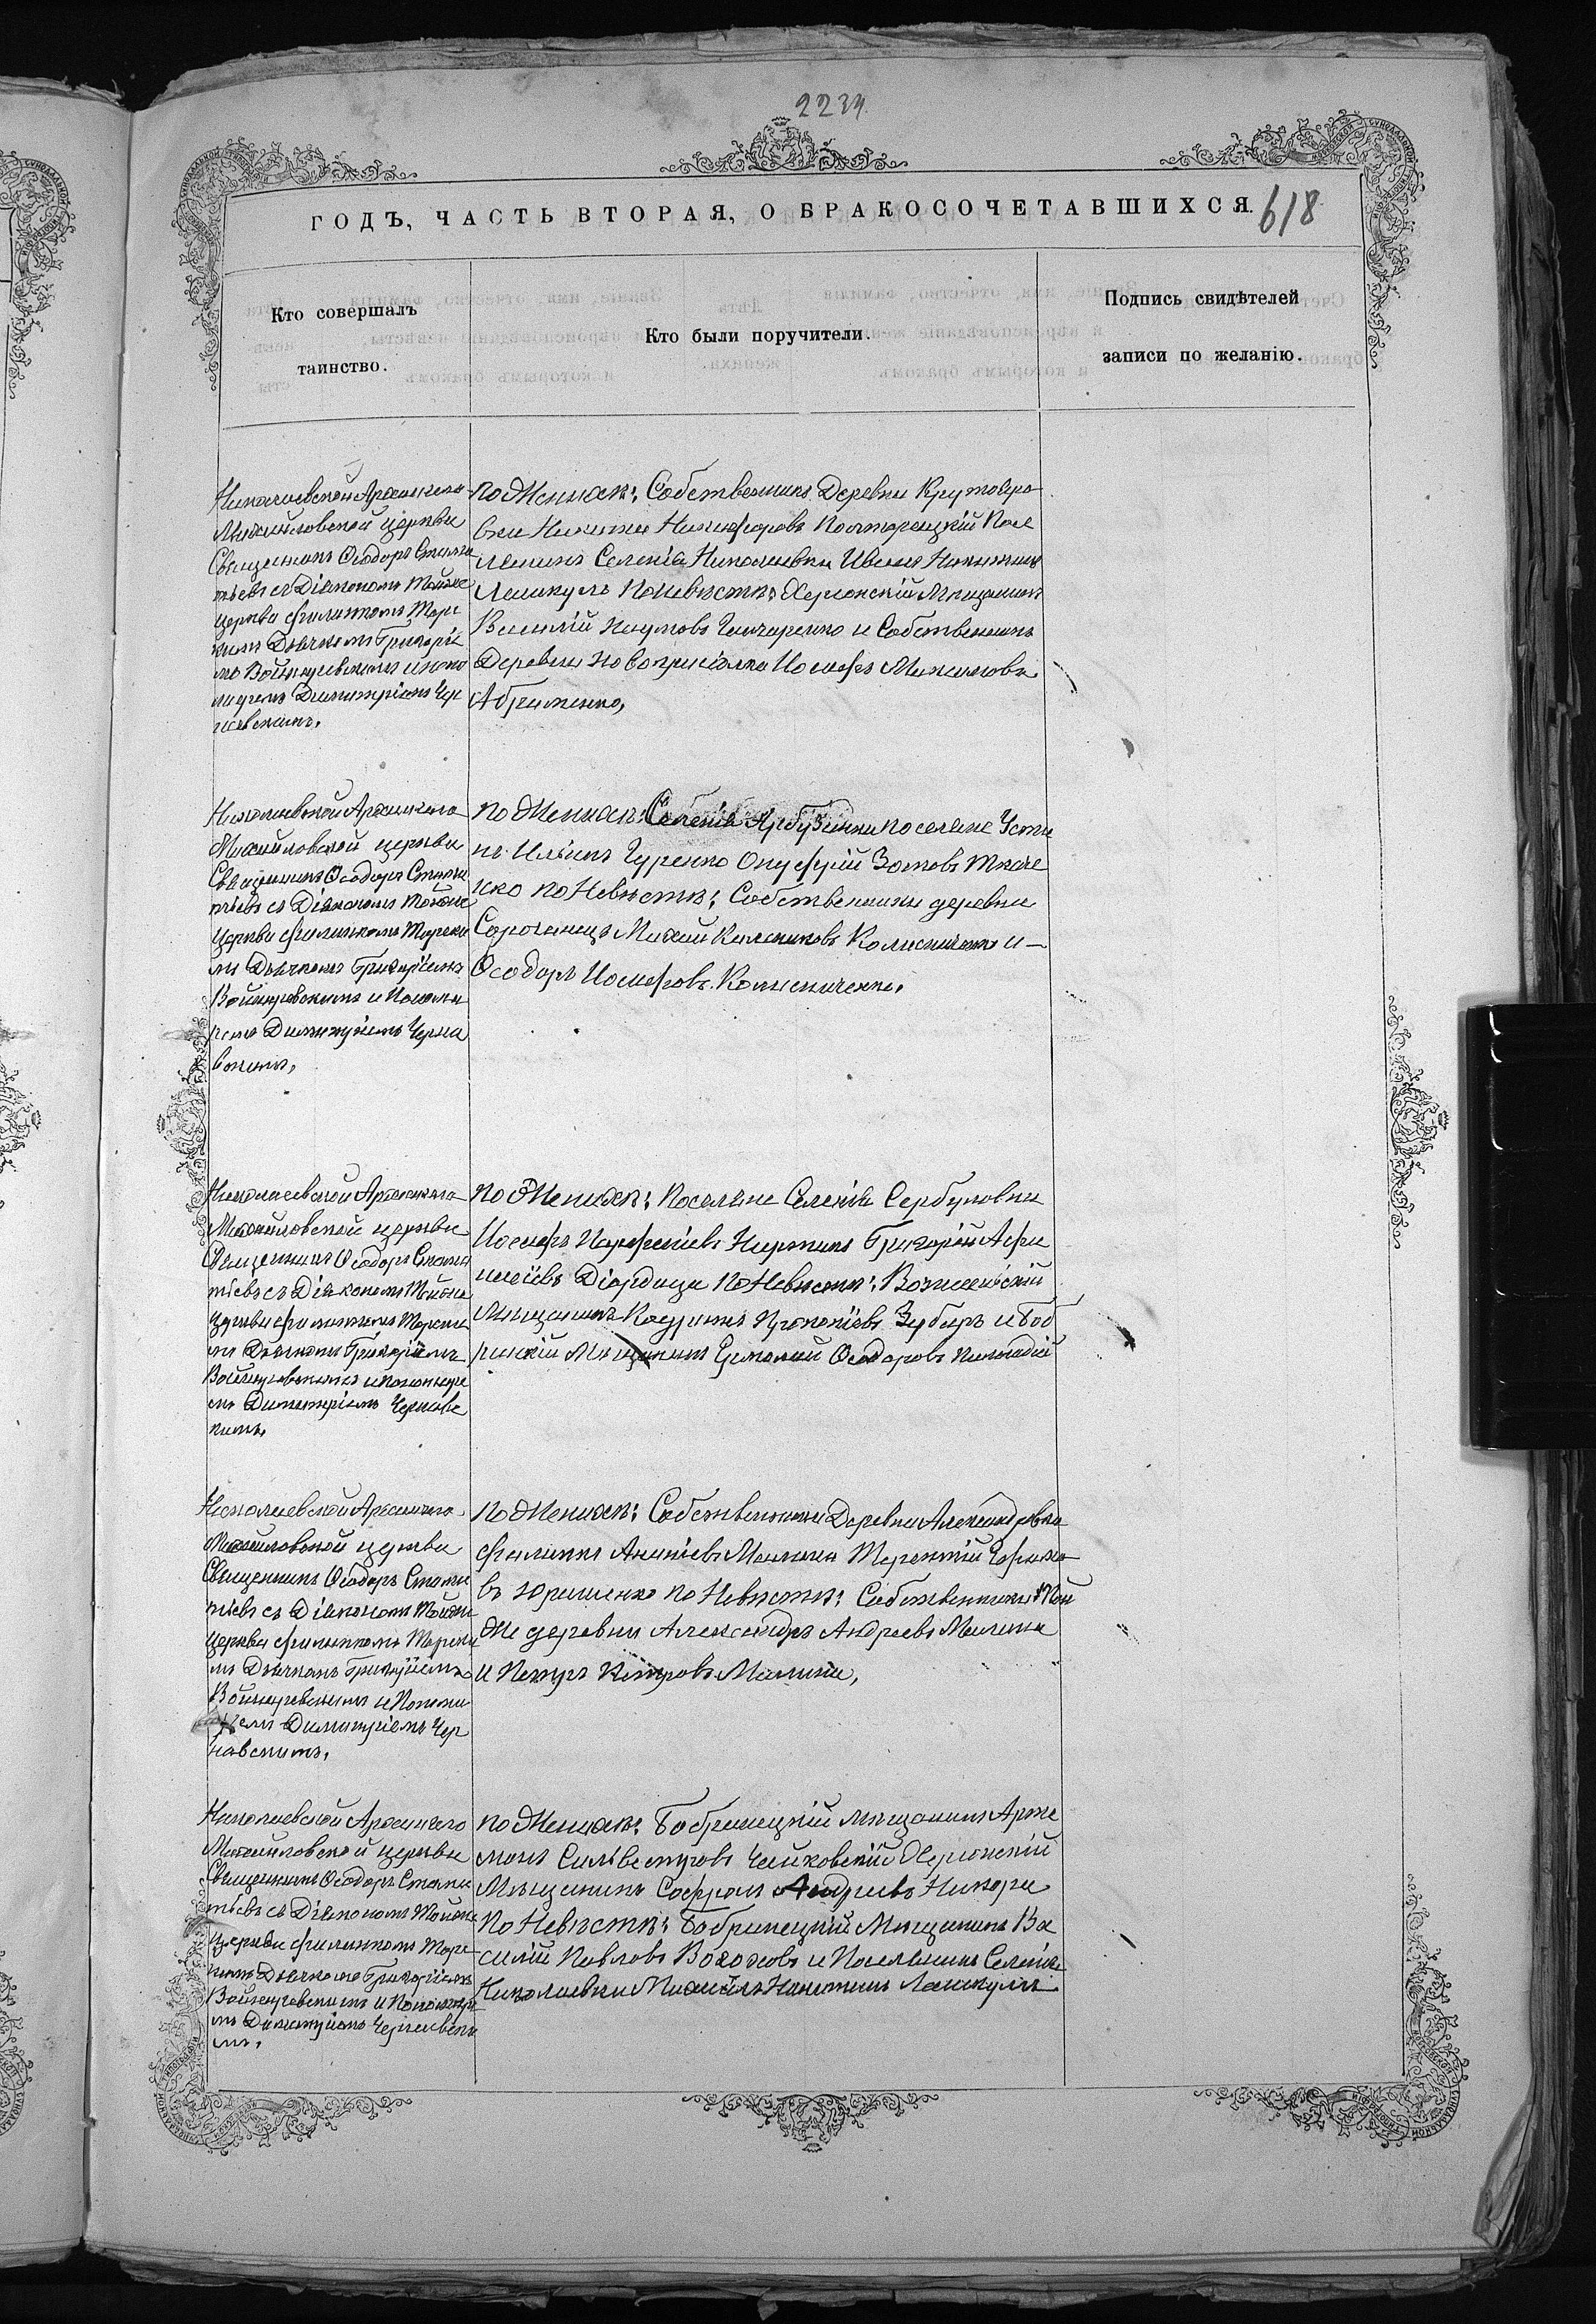 2234
ГОДЪ, ЧАСТЬ ВТОРАЯ, О БРАКОСОЧЕТАВШИХСЯ.
618
Кто совершалъ
таинство.
Кто были поручители.
Подпись свидѣтелей
записи по желанію.
Николаевской Архангело
Михайловской церкви
Священникъ Ѳеодоръ Стама
тьевъ съ Діакономъ тойже
церкви Филиппомъ Терс
кимъ Дьячкомъ Григоріе
мъ
Димитріемъ Чер
навскимъ,
по Женихѣ: Собственникъ Деревни Крутояро
вки Никита Никифоровъ Полторацкій Посе
лянинъ Селенія Николаевки Иванъ Никитинъ
Лашкулъ по Невѣстѣ: Херсонскій Мѣщанинъ
Василій Наумовъ Гончаренко и Собственникъ
Деревни Іосифъ
Абраменко,
Николаевской Архангело
Михайловской церкви
Священникъ Ѳеодоръ Стама
тьевъ съ Діакономъ тойже
церкви Филиппомъ Терски
мъ Дьячкомъ Григоріемъ
и Понома
ремъ Димитріемъ Черна
вскимъ,
по Женихѣ: Селенія Арбузинки поселяне Усти
нъ Ильинъ Гуренко Онуфрій Зотовъ Ткаче
нко по Невѣстѣ: Собственники деревни
Михаилъ и
Ѳеодоръ Іосифовъ Колисниченко,
Николаевской Архангело
Михайловской церкви
Священникъ Ѳеодоръ Стама
тьевъ съ Діакономъ тойже
церкви Филиппомъ Терски
мъ Дьячкомъ Григоріемъ
и Пономаре
мъ Димитріемъ Чернавс
кимъ,
по Женихѣ: Поселяне Селенія Сербуловки
Іосифъ Парфеніевъ Григорій Афа
насіевъ Діордица по Невѣстѣ: Вознесенскій
Мѣщанинъ Прокопіевъ Зубарь и Боб
ринскій Мѣщанинъ Ѳеодоровъ
Николаевской Архангело
Михайловской церкви
Священникъ Ѳеодоръ Стама
тьевъ съ Діакономъ тойже
церкви Филиппомъ Терски
мъ Дьячкомъ Григоріемъ
и Понома
ремъ Димитріемъ Чер
навскимъ,
по Женихѣ: Собственники Деревни Александровки
Филиппъ Ананіевъ Малина Терентій
въ Юрашенко по Невѣстѣ: Собственники той
же деревни Александръ Андреевъ Малина
и Петръ Петровъ Малина,
Николаевской Архангело
Михайловской церкви
Священникъ Ѳеодоръ Стама
тьевъ съ Діакономъ тойже
церкви Филиппомъ Терс
кимъ Дьячкомъ Григоріемъ
и Пономаре
мъ Димитріемъ Чернавски
мъ,
по Женихѣ: Бобринецкій мѣщанинъ Арте
монъ Сильвестровъ Чайковскій Херсонскій
Мѣщанинъ Софронъ Андреевъ
по Невѣстѣ: Бобринецкій Мѣщанинъ Ва
силій Павловъ и Поселянинъ Селенія
Николаевки Михаилъ Никитинъ Лашкулъ